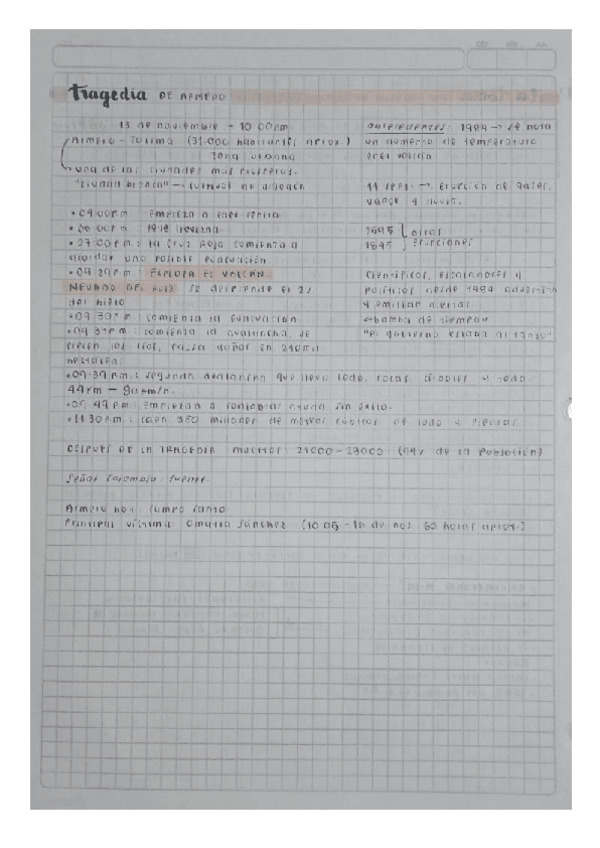 Tragedia DE ARMERO
13 de noviembre - 10:00pm
Armero - Tolima (31.000 habitantes aprox.)
zona urbana
una de las ciudades más
"Ciudad blanca" → cultivos de algodón
• 04:00pm empieza a caer ceniza
• 06:00pm llovizna
• 07:00pm : la Cruz Roja comienza a
abordar una posible evacuación.
• 09:29pm : EXPLOTA EL VOLCÁN
NEVADO DEL RUIZ. Se desprende el 2%
del hielo
• 09:30pm : comienza la
• 09:37pm : comienza la avalancha, se
crecen los ríos, causa daños en
• 09:39 p.m. : segunda avalancha que lleva lodo, rocas, árboles y todo.
44km - 80km/h.
pm : empiezan a contactar ayuda sin éxito.
• 11:30pm : caen 350 millones de metros cúbicos de lodo y piedras.
Antecedentes: 1984 → se nota
un aumento de temperatura
en el volcán
11 sept. → erupción de gases,
vapor y lluvia.
1595 } otras
1845 } erupciones
Científicos, y
políticos desde 1984 advertían
y emitían alertas
"bomba de tiempo"
"el gobierno estaba al tanto"
DESPUÉS DE LA TRAGEDIA muertos: 21000 - 23000 ( de la población)
Señal Colombia : fuente.
Armero hoy : campo santo
Principal víctima Omayra Sánchez ( - 16 de nov. 60 horas aprox.)